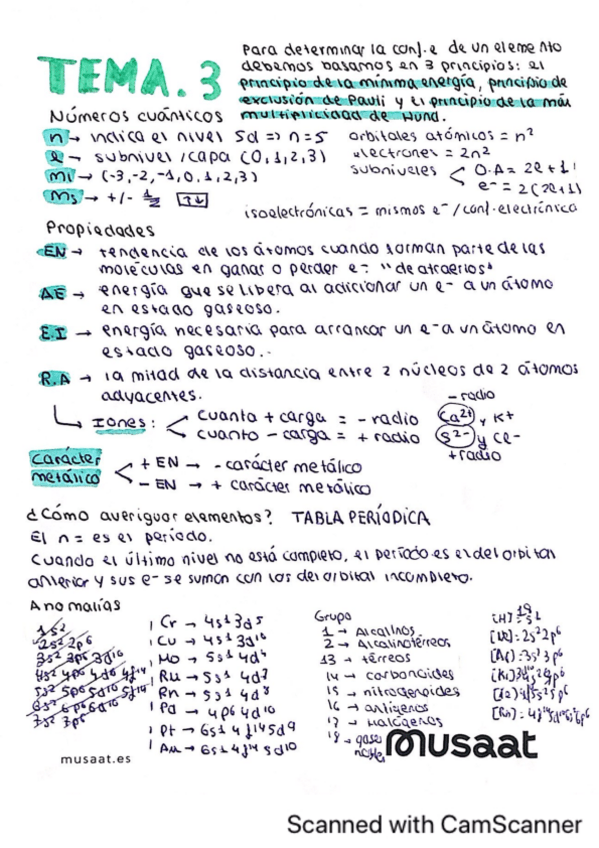 TEMA. 3
Para determinar la conf. e de un elemento
debemos basarnos en 3 principios: el
principio de la mínima energía, principio de
exclusión de Pauli y el principio de la máx
multiplicidad de Hund.
Números cuánticos
n → indica el nivel 5d => n=5
l → subnivel /capa (0,1,2,3)
ml → (-3,-2,-1,0,1,2,3)
ms → +/- 1/2 ↑↓
orbitales atómicos = n²
electrones = 2n²
subniveles < O.A = 2l+1
e- = 2(2l+1)
isoelectrónicas = mismos e-/conf.electrónica
Propiedades
EN → tendencia de los átomos cuando forman parte de las
moléculas en ganar o perder e- "de atraerlos"
AE → energía que se libera al adicionar un e- a un átomo
en estado gaseoso.
E.I → energía necesaria para arrancar un e- a un átomo en
estado gaseoso..
R.A → la mitad de la distancia entre 2 núcleos de 2 átomos
adyacentes.
Iones: < cuanta + carga = - radio
cuanto - carga = + radio
- radio
Ca²⁺ y K+
S²⁻ y Cl-
+ radio
Carácter metálico < + EN → - carácter metálico
- EN → + carácter metálico
¿Cómo averiguar elementos? TABLA PERÍODICA
El n = es el período.
Cuando el último nivel no está completo, el período es el del orbital
anterior y sus e- se suman con los del orbital incompleto.
Anomalías
1s²
2s² 2p⁶
3s² 3p⁶ 3d¹⁰
4s² 4p⁶ 4d¹⁰ 4f¹⁴
5s² 5p⁶ 5d¹⁰ 5f¹⁴
6s² 6p⁶ 6d¹⁰
7s² 7p⁶
Cr → 4s1 3d5
Cu → 4s1 3d10
Mo → 5s1 4d5
Ru → 5s1 4d7
Rn → 5s1 4d8
Pd → 4p6 4d10
Pt → 6s1 4f14 5d9
Au → 6s1 4f14 5d10
Grupo
1 → Alcalinos
2 → Alcalinotérreos
13 → térreos
14 → carbonoides
15 → nitrogenoides
16 → antígenos
17 → halógenos
18 → gases nobles
[Ne]: 2s²2p⁶
[Ar]: 3s²3p⁶
musaat.es
Musaat
Scanned with CamScanner